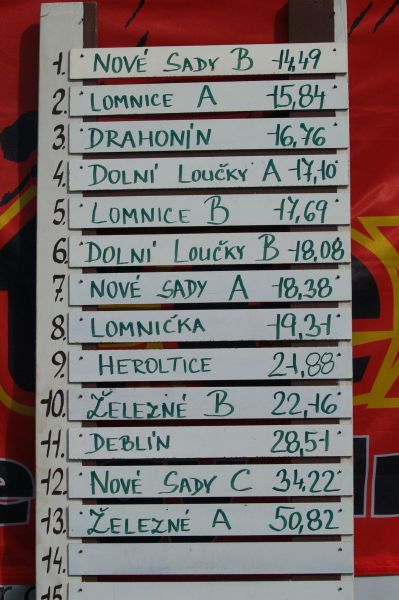 1. NOVÉ SADY B 14,49
2. LOMNICE A 15,84
3. DRAHONÍN 16,76
4. DOLNÍ LOUČKY A 17,10
5. LOMNICE B 17,69
6. DOLNÍ LOUČKY B 18,08
7. NOVÉ SADY A 18,38
8. LOMNIČKA 19,31
9. HEROLTICE 21,88
10. ŽELEZNÉ B 22,16
11. DEBLÍN 28,51
12. NOVÉ SADY C 34.22
13. ŽELEZNÉ A 50,82
14.
15.